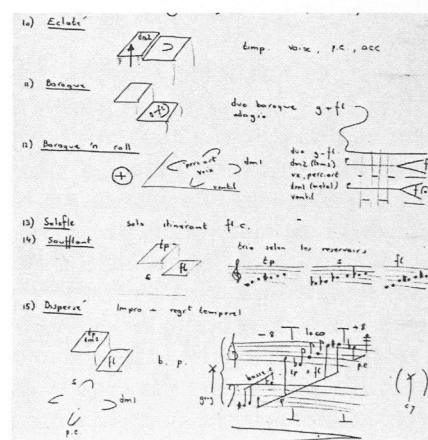 10) Eclaté
dm2
timp. voix, p.c., acc
11) Baroque
g+fl
duo baroque g+fl
adagio
12) Baroque 'n roll
perc.art
voix
dm1
ventil
duo g-fl
dm2 (tms)
vx, perc.art
dm1 (metal)
ventil
13) Solofle solo itinérant fl.c.
14) Soufflant
tp
s
fl
trio selon les reservoirs
tp s fl
15) Dispersé Impro + regst temporel
tp
dm2
fl
b. p.
s
dm1
p.c.
-8 loco +8
tp
fl
p.c